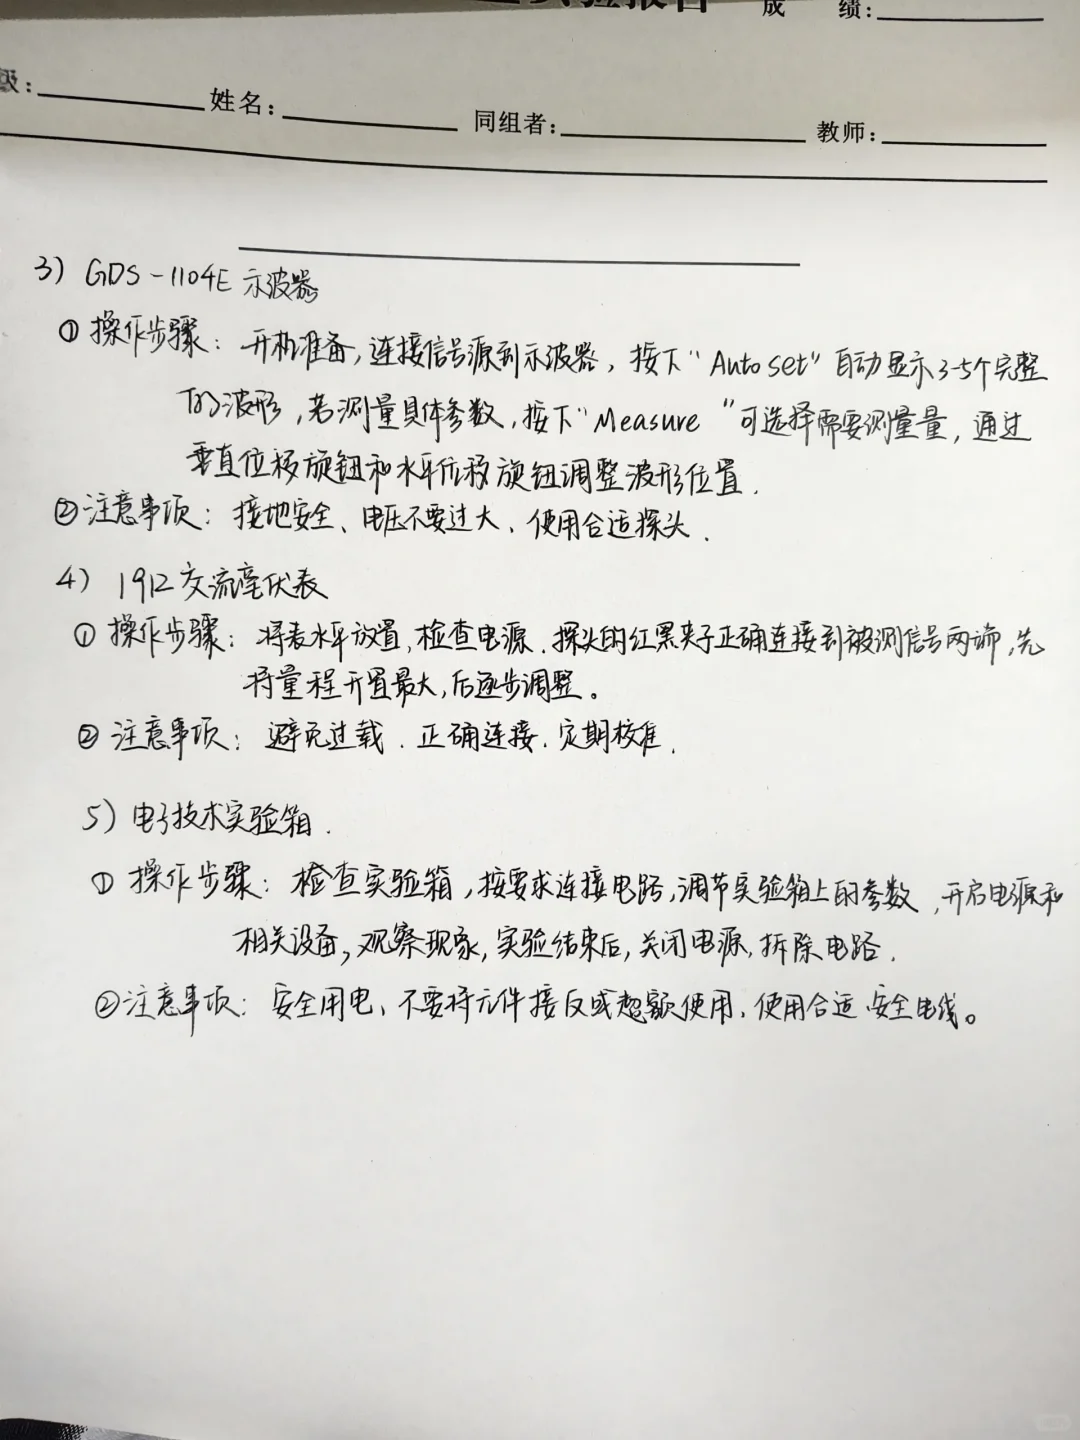 实验报告 成 绩:
级: 姓名: 同组者: 教师:
3) GDS-1104E 示波器
① 操作步骤: 开机准备, 连接信号源到示波器, 按下"Auto set"自动显示3-5个完整
的波形, 若测量具体参数, 按下"Measure"可选择需要测量量, 通过
垂直位移旋钮和水平位移旋钮调整波形位置.
② 注意事项: 接地安全、电压不要过大、使用合适探头.
4) 1912交流毫伏表
① 操作步骤: 将表水平放置, 检查电源、探头的红黑夹子正确连接到被测信号两端, 先
将量程开置最大, 后逐步调整。
② 注意事项: 避免过载、正确连接、定期校准.
5) 电子技术实验箱.
① 操作步骤: 检查实验箱, 按要求连接电路, 调节实验箱上的参数, 开启电源和
相关设备, 观察现象, 实验结束后, 关闭电源, 拆除电路.
② 注意事项: 安全用电、不要将元件接反或超额使用、使用合适、安全电线。